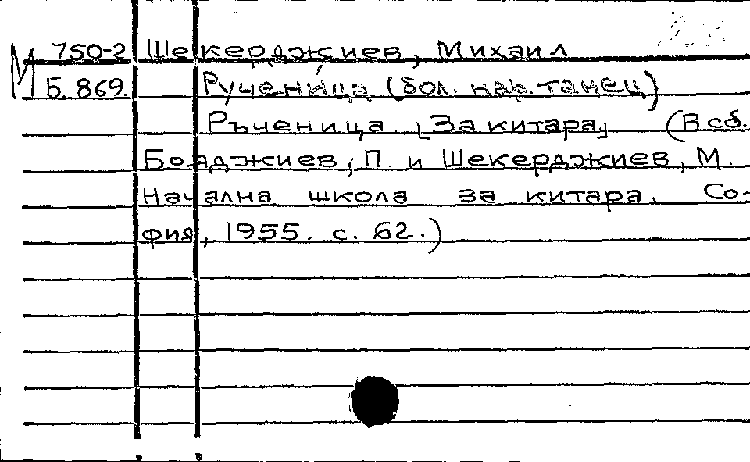 750-2 Шекерджиев, Михаил
М Б.869. Рученица (бол. нар. танец)
Ръченица. [За китара] (В сб.
Бояджиев, П. и Шекерджиев, М.
Начална школа за китара. Со-
фия, 1955. с. 62.)